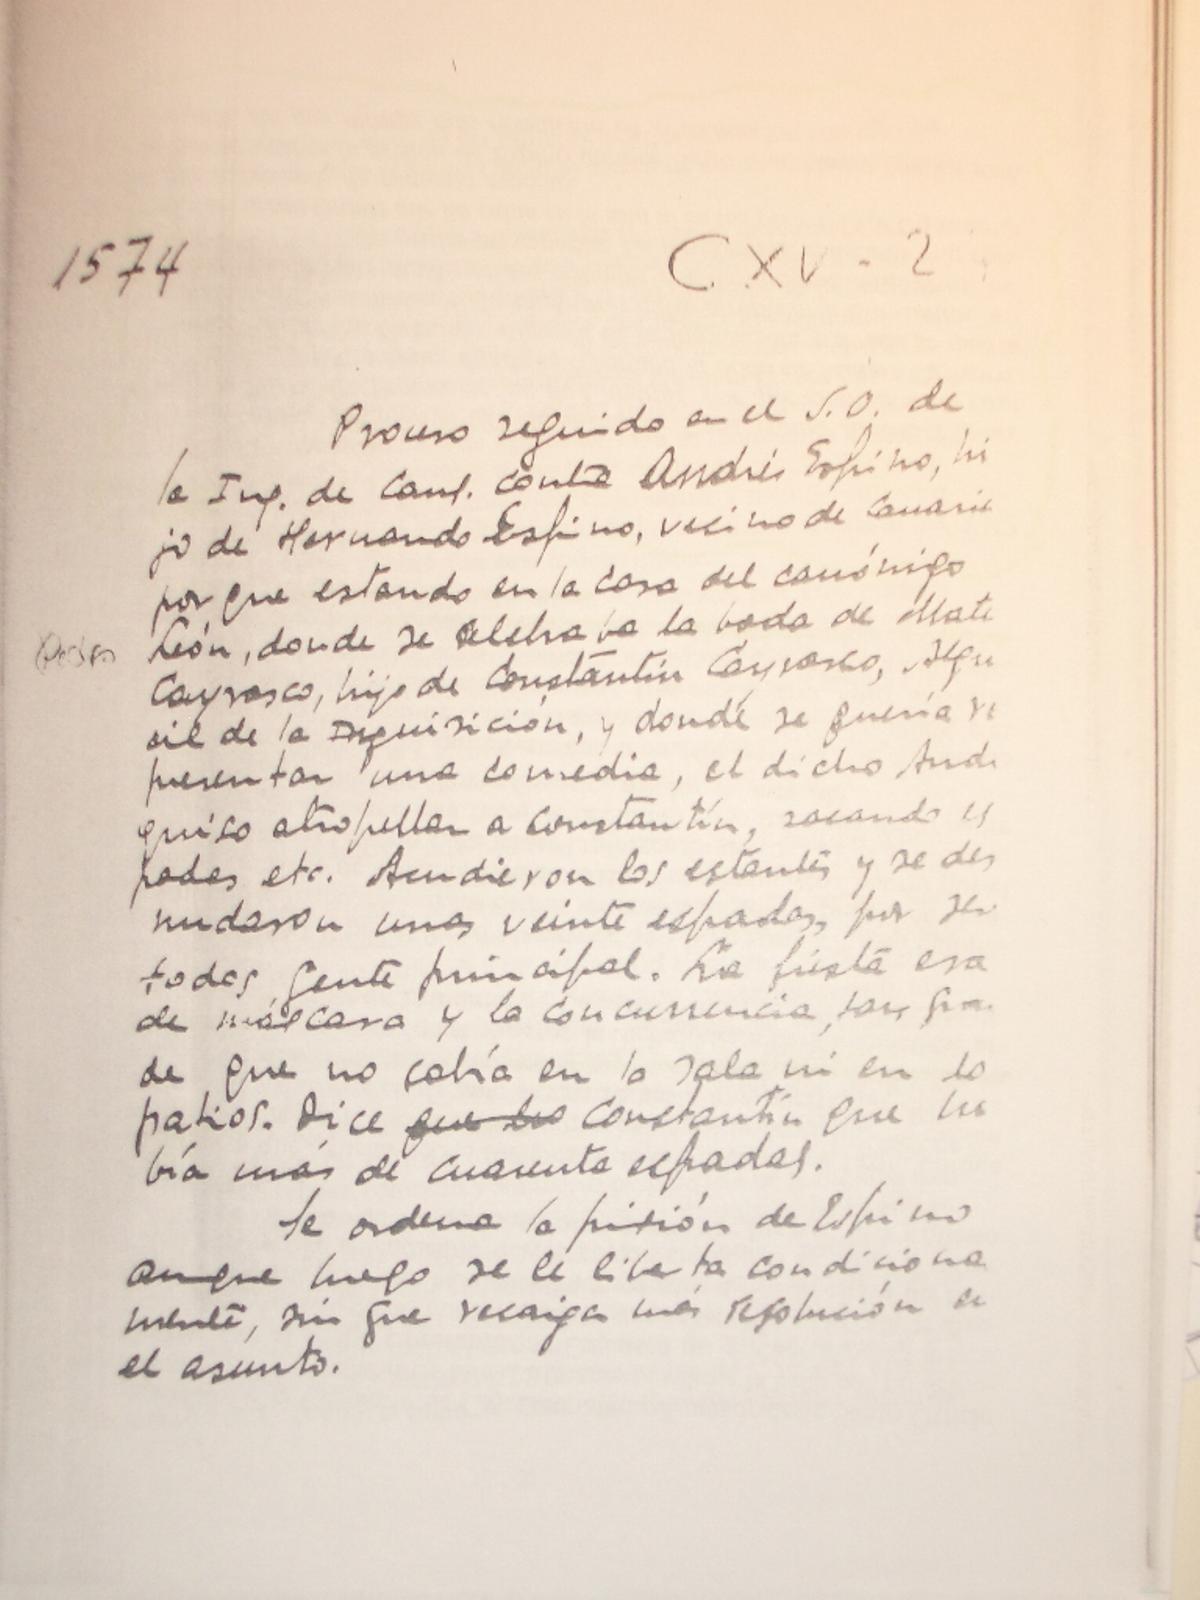 1574
CXV - 2
Proceso seguido en el S. O. de
la Inq. de Can. contra Andrés Espino, hi
jo de Hernando Espino, vecino de Canaria
porque estando en la casa del canónigo
León, donde se celebraba la boda de Mate
Cayrasco, hijo de Constantín Cayrasco, Algua
cil de la Inquisición, y donde se quería re
presentar una comedia, el dicho Andr
quiso atropellar a Constantín, sacando es
padas etc. Acudieron los estantes y se des
nudaron unas veinte espadas, por ser
todos gente principal. La fiesta era
de máscara y la concurrencia, tan gran
de que no cabía en la sala ni en lo
patios. Dice que los Constantín que ha
bía más de cuarenta espadas.
Se ordena la prisión de Espino
aunque luego se le liberta condiciona
mente, sin que recaiga más resolución en
el asunto.